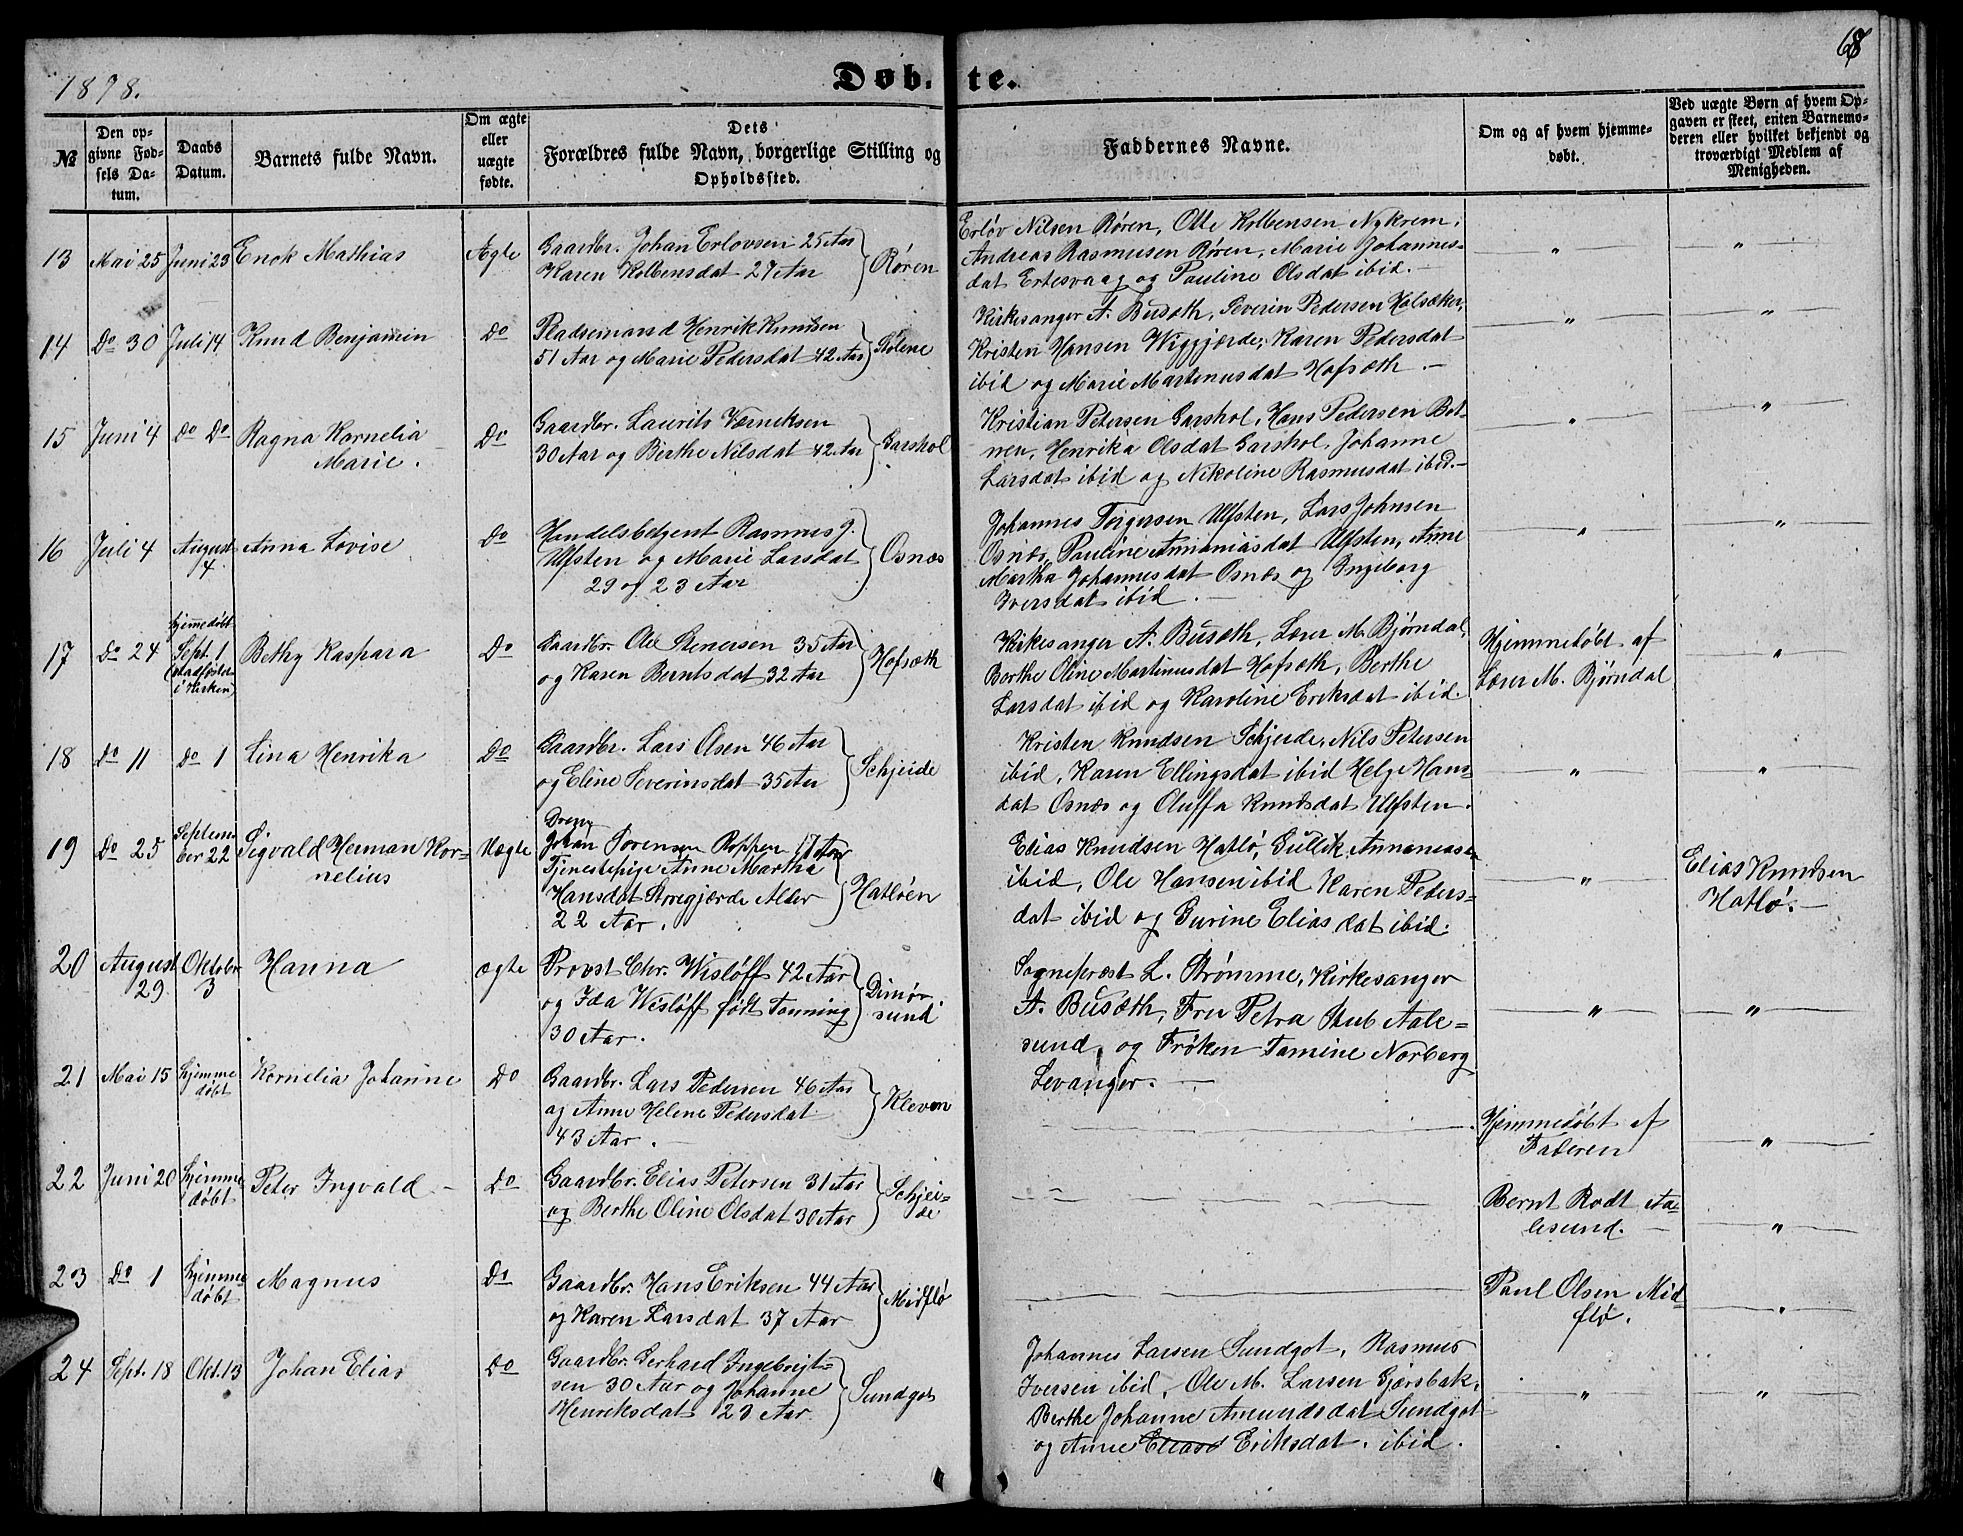 1878.
Døb.te.
68
№
Den opgivne Fødsels Datum.
Daabs Datum.
Barnets fulde Navn.
Om ægte eller uægte fødte.
Dets Forældres fulde Navn, borgerlige Stilling og Opholdssted.
Faddernes Navne.
Om og af hvem hjemmedøbt.
Ved uægte Børn af hvem Opgaven er skeet, enten Barnemoderen eller hvilket bekjendt og troværdigt Medlem af Menigheden.
13 Mai 25 Juni 23 Enok Mathias Ægte
Gaardbr. Johan Erlovsen 25 Aar
Karen Kolbensdat 27 Aar
Røren
Erløv Nilsen Røren, Otte Kolbensen Nykrem,
Andreas Rasmusen Røren, Marie Johannes-
dat Ertesvaag og Pauline Olsdat ibid.
" "
14 Do 30 Juli 14 Knud Benjamin Do
Pladsemand Henrik Knudsen
51 Aar og Marie Pedersdat 42 Aar
Stølene
Kirkesanger A. Busæth, Severin Pedersen Holsæker,
Kristen Hansen Wiggjerde, Karen Pedersdat
ibid og Marie Martinusdat Hofsæth.
" "
15 Juni 4 Do Do Ragna Kornelia
Marie. Do
Gaardbr. Laurits Værneksen
30 Aar og Berthe Nilsdat 42 Aar
Garshol
Kristian Petersen Garshol, Hans Pedersen Bot-
nen, Henrika Olsdat Garshol, Johanne
Larsdat ibid og Nikoline Rasmusdat ibid.
" "
16 Juli 4 August
4 Anna Lovise Do
Handelsbetjent Rasmus J.
Ulfsten og Marie Larsdat
29 og 23 Aar
Osnæs
Johannes Torgersen Ulfsten, Lars Johnsen
Osnæs, Pauline Annaniasdat Ulfsten, Anne
Martha Johannesdat Osnæs og Ingeborg
Iversdat ibid.
" "
17 Do 24 hjemmedøbt
Sept. 1
(stadfestet
i Kirken) Bethy Kaspara Do
Gaardbr. Ole Stenersen 35 Aar
og Karen Berntsdat 32 Aar
Hofsæth
Kirkesanger A. Busæth, Lærer M. Bjørndal,
Berthe Oline Martinusdat Hofsæth, Berthe
Larsdat ibid og Karoline Eriksdat ibid.
Hjemmedøbt af
Lærer M. Bjørndal
"
18 Do 11 Do 1 Lina Henrika Do
Gaardbr. Lars Olsen 46 Aar
og Eline Severinsdat 35 Aar
Schjeide
Kristen Knudsen Schjerde, Nils Petersen
ibid, Karen Ellingsdat ibid Helge Hans-
dat Osnæs og Oluffa Knudsdat Ulfsten.
" "
19 Do 25 Septem-
ber 22 Sigvald Herman Kor-
nelius Uægte
Dreng
Johan Sørensen Roppen 17 Aar
Tjenestepige Anne Martha
Hansdat Storegjærde Alder
22 Aar.
Hatløen
Elias Knudsen Hatlø, Gullik Annaniasen
ibid, Ole Hansen ibid Karen Peders-
dat ibid og Gurine Eliasdat ibid.
"
Elias Knudsen
Hatlø.
20 August
29 Oktober
3 Hanna ægte
Provst Chr. Wisløff 42 Aar
og Ida Wisløff født Tonning
30 Aar.
Dimør
sund
Sognepræst L. Strømme, Kirkesanger
A. Busæth, Fru Petra Stub Aale-
sund, og Frøken Tomine Norberg
Levanger.
" "
21 Mai 15 hjemme
døbt Kornelia Johanne Do
Gaardbr. Lars Pedersen 46 Aar
og Anne Helene Pedersdat
43 Aar.
Kleven
Hjemmedøbt af
Faderen
"
22 Juni 20 hjemme
døbt Peter Ingvald Do
Gaardbr. Elias Petersen 31 Aar
og Berthe Oline Olsdat 30 Aar
Schjei-
de
Bernt Rodt Aa-
lesund.
"
23 Do 1 hjemme
døbt Magnus Do
Gaardbr. Hans Eriksen 44 Aar
og Karen Larsdat 37 Aar
Midflø
Paul Olsen Mid-
flø.
"
24 Sept. 18 Okt. 13 Johan Elias Do
Gaardbr. Gerhard Ingebrigt-
sen 30 Aar og Johanne
Henriksdat 23 Aar
Sundgot
Johannes Larsen Sundgot, Rasmus
Iversen ibid, Ole M. Larsen Gjærsbak,
Berthe Johanne Amundsdat Sundgot
og Anne Eliasd Eriksdat. ibid.
" "